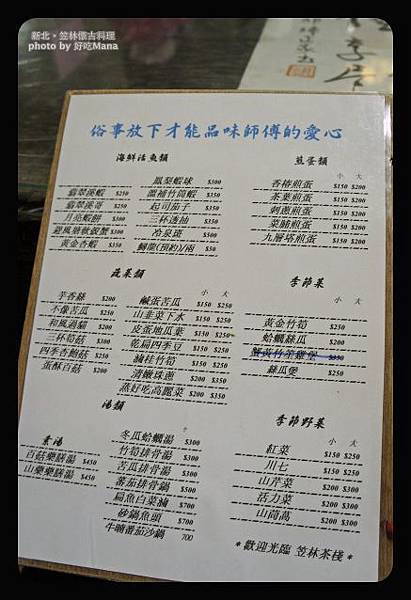 新北。笠林懷古料理
photo by 好吃Mana
俗事放下才能品味師傅的愛心
海鮮活魚類
翡翠溪蝦 $250
翡翠溪哥 $250
月亮蝦餅 $300
避風塘軟殼蟹 $300
黃金杏蝦 $350
鳳梨蝦球 $300
溫補竹筒蝦 $350
起司茄子 $350
三杯透抽 $350
冷泉斑 $500
鱘龍(預約)/兩 $50
煎蛋類
小 大
香椿煎蛋 $150 $200
茶葉煎蛋 $150 $200
刺蔥煎蛋 $150 $200
菜脯煎蛋 $150 $200
九層塔煎蛋 $150 $200
蔬菜類
芋香絲 $200
不像苦瓜 $250
和風過貓 $200
三杯筍菇 $300
四季杏鮑菇 $250
蛋酥百菇 $200
小 大
鹹蛋苦瓜 $150 $250
山韭菜下水 $150 $250
皮蛋地瓜葉 $150 $250
乾扁四季豆 $150 $250
滷桂竹筍 $150 $250
清嫩珠蔥 $200 $350
蒸好吃高麗菜 $200 $350
季節菜
小 大
黃金竹筍 $150 $250
蛤蠣絲瓜 $150 $250
蟹黃竹筍雞煲 $350
絲瓜煲 $150 $250
湯類
冬瓜蛤蠣湯 $300
竹筍排骨湯 $300
苦瓜排骨湯 $300
蕃茄排骨鍋 $500
扁魚白菜滷 $500
砂鍋魚頭 $700
牛嫩蕃茄沙鍋 700
素湯
百菇藥膳湯 $450
山藥藥膳湯 $450
季節野菜
小 大
紅菜 $150 $250
川七 $150 $250
山芹菜 $200 $300
活力菜 $200 $300
山茼蒿 $200 $300
* 歡迎光臨 笠林茶棧 *